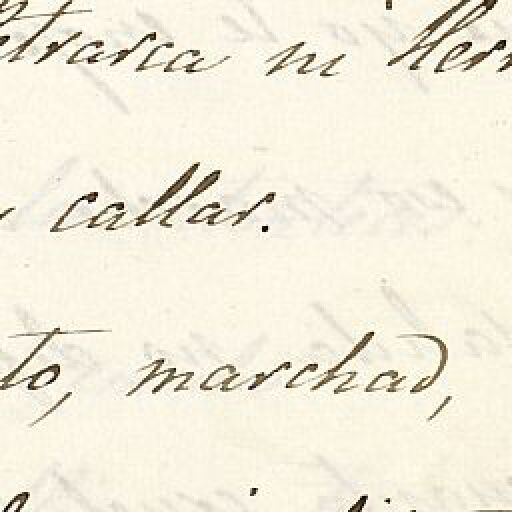 etrarca ni Herr
callar.
to, marchad,